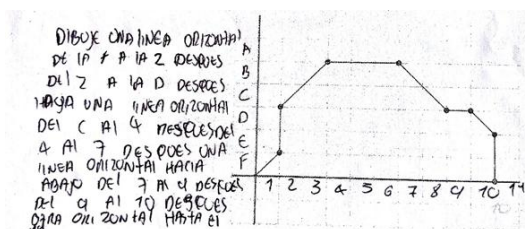 DIBUJE UNA lINEA ORIZONTAl
DE lA F A lA 2 DESPUES
DEl 2 A lA D DESPUES
HAGA UNA lINEA ORIZONTAl
DEl C Al 4 DESPUES DEl
4 Al 7 DESPUES UNA
lINEA ORIZONTAl HACIA
ABAJO DEl 7 Al 9 DESPUES
DEl 9 Al 10 DESPUES
OTRA ORIZONTAl HASTA El
A
B
C
D
E
F
1 2 3 4 5 6 7 8 9 10 11
10